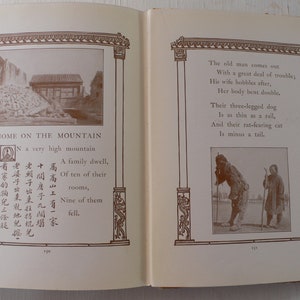 HOME ON THE MOUNTAIN
ON a very high mountain
A family dwell,
Of ten of their
rooms,
Nine of them
fell.
高高山上有一家
十間房子九間塌
150
The old man comes out
With a great deal of trouble;
His wife hobbles after,
Her body bent double.
Their three-legged dog
Is as thin as a rail,
And their rat-fearing cat
Is minus a tail.
151